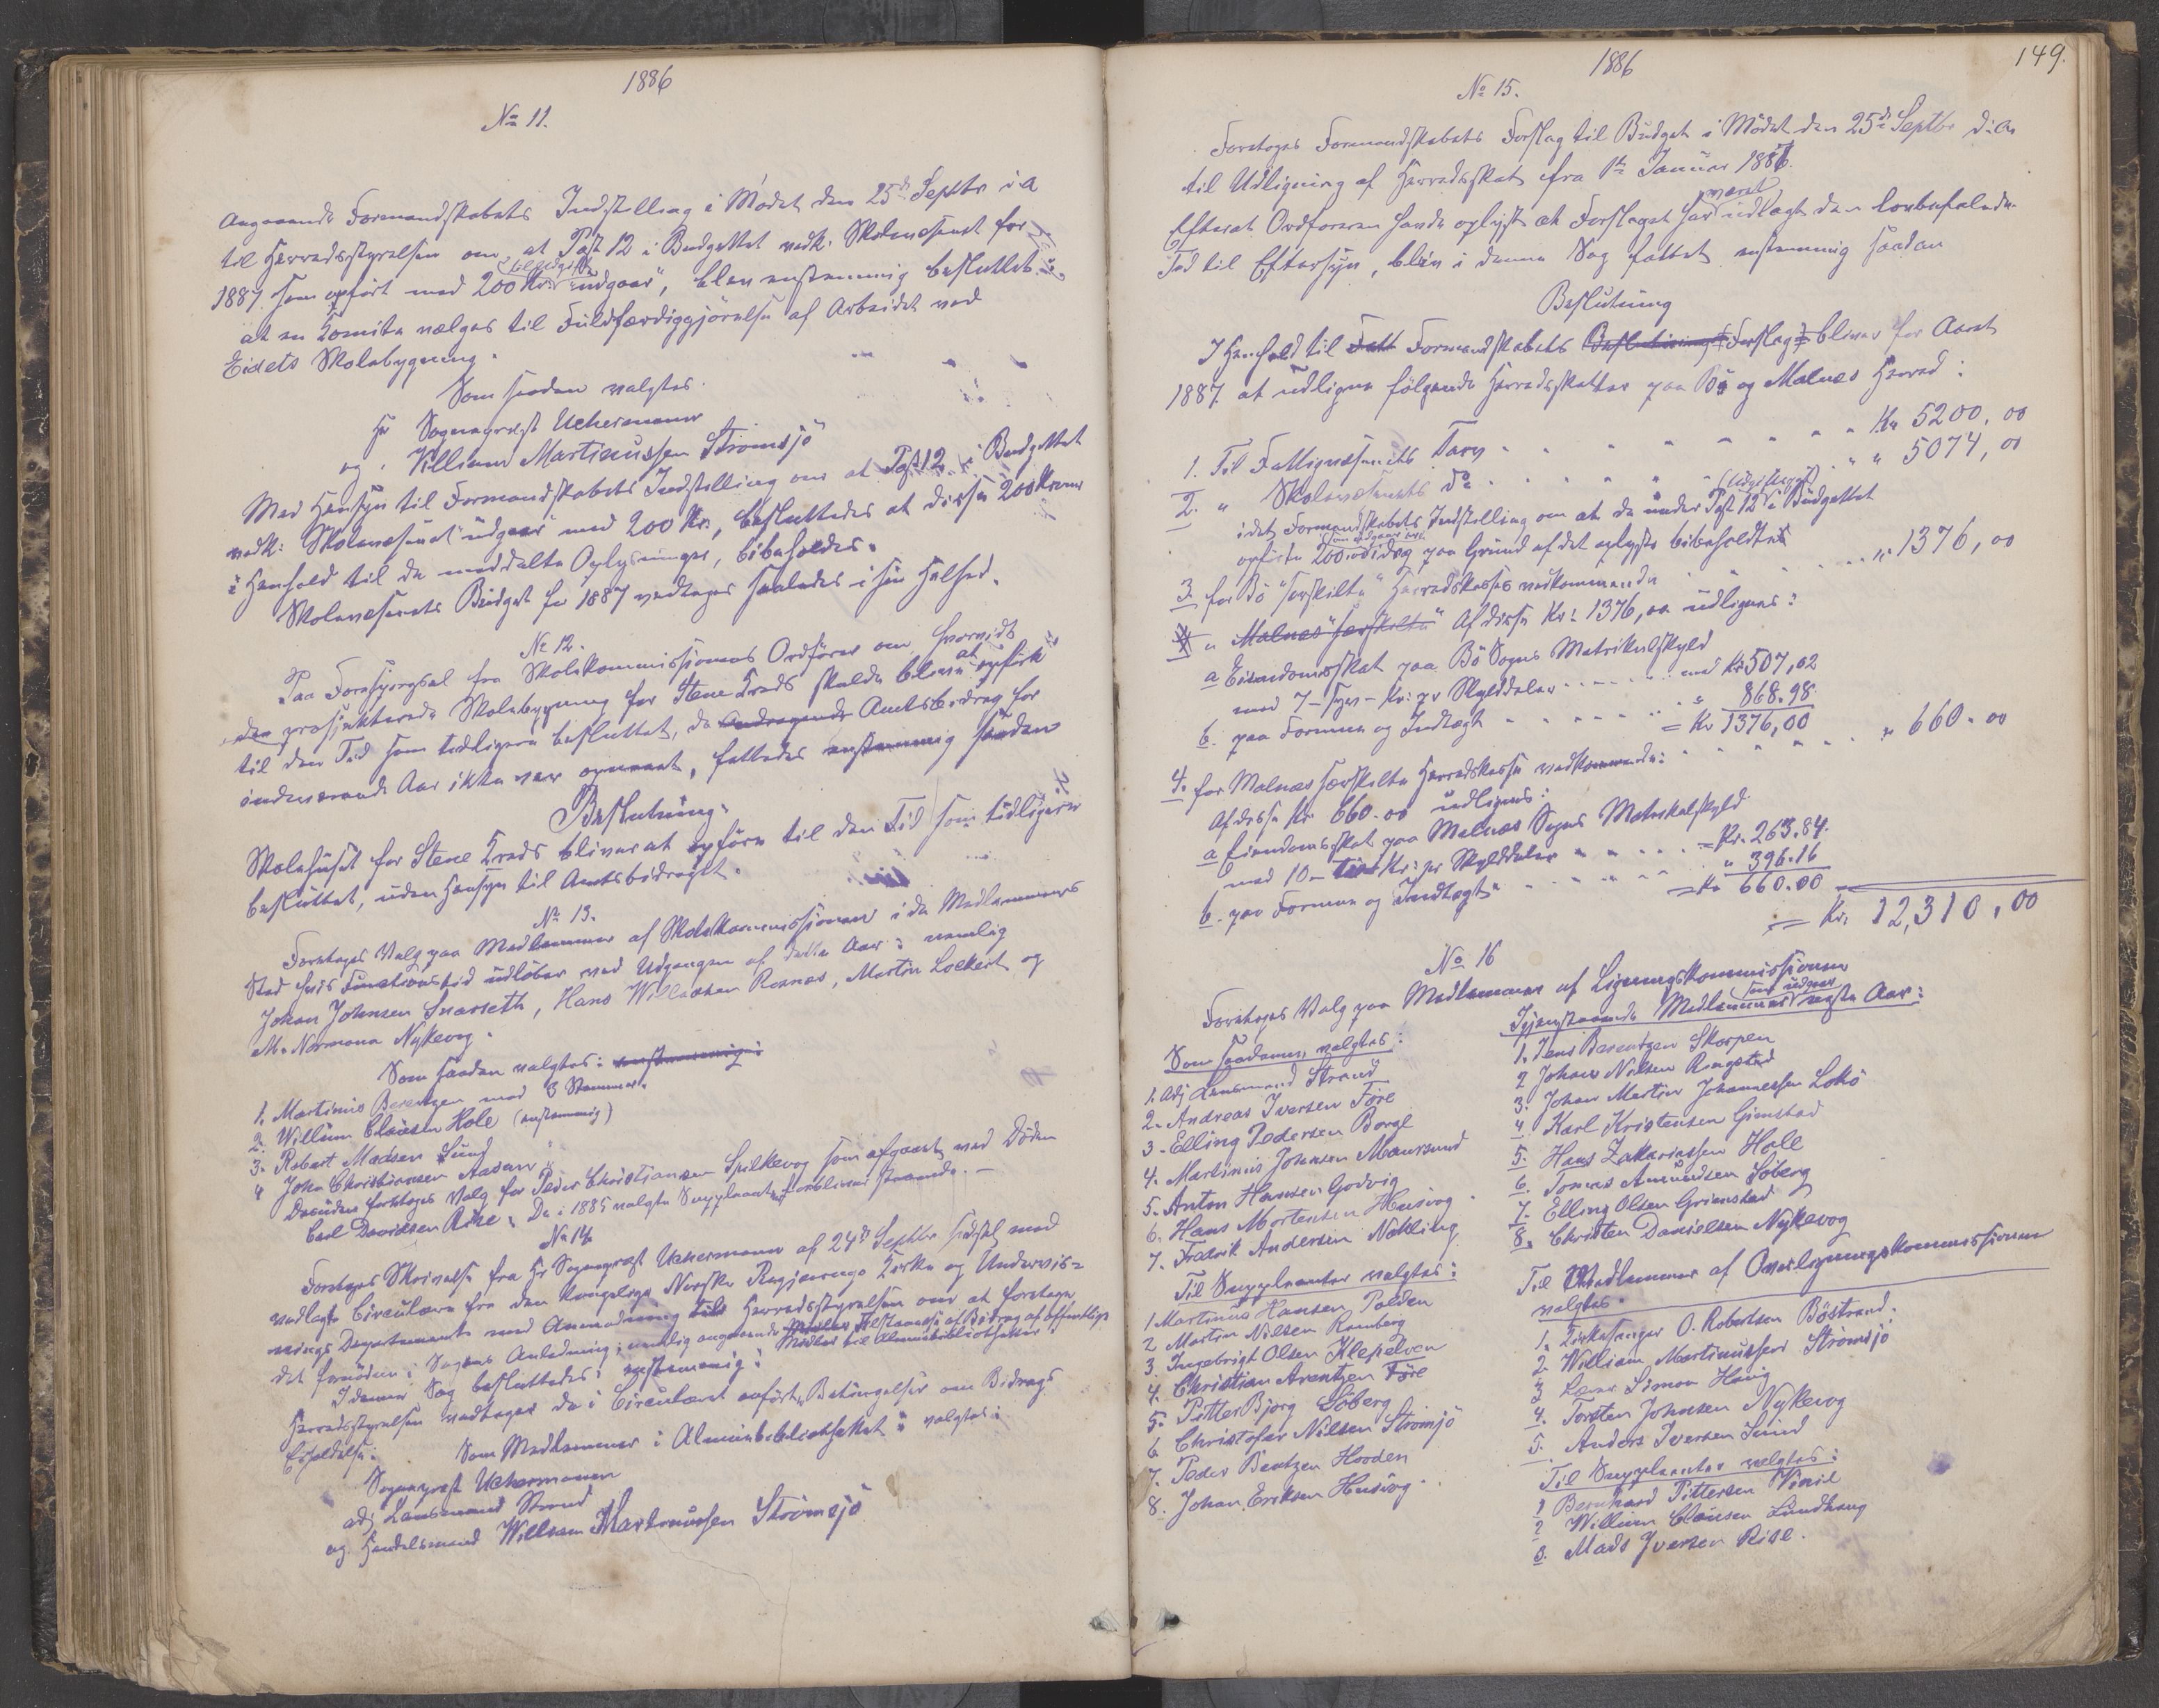 1886
No 11.
Angaaende Formandskabets Indstilling i Mödet den 25de Septbr i A
til Herredsstyrelsen om at Post 12 i Budgettet vedk: Skolevæsenet for
1887 som opfört med 200 Kr: til Udgift "udgaar", blev enstemmig besluttet:
at en Komite vælges til Fuldfærdiggjörelse af Arbeidet ved
Eidets Skolebygning.
Som saadan valgtes.
Hr Sogneprest Uchermann
og William Martinussen Strömsjö
Med Hensyn til Formandskabets Indstilling om at Post 12 i Budgettet
vedk: Skolevæsenet "udgaar" med 200 Kr., besluttedes at disse 200 Kroner
i Henhold til de meddelte Oplysninger, bibeholdes.
Skolevæsenets Budget for 1887 vedtages saaledes i sin Helhed.
No 12.
Paa Forespörgsel fra Skolekommissionens Ordförer om hvorvidt
den projekterede Skolebygning for Stene Kreds skulde blive at opföre
til den Tid som tidligere besluttet, da Andragende Amtsbidrag for
indeværende Aar ikke var opnaaet, fattedes enstemmig saadan
Beslutning.
Skolehuset for Stene Kreds bliver at opföre til den Tid som tidligere
besluttet, uden Hensyn til Amtsbidraget.
No 13.
Foretoges Valg paa Medlemmer af Skolekommissionen i de Medlemmers
Sted hvis Functionstid udlöber ved Udgangen af dette Aar: nemlig
Johan Johnsen Snarseth, Hans Willadsen Rosnæs, Martin Lockert og
M. Normann Nykvog.
Som saadan valgtes: enstemmig:
1. Martinus Berentzen med 3 Stemmer.
2. William Clausen Hole (enstemmig)
3. Robert Madsen Sund
4 John Christiansen Aasan "
Desuden foretoges Valg for Peder Christiansen Spilkevog som afgaaet ved Döden
Carl Davidsen Rise. De i 1885 valgte Supleanter forbliver staaende.
No 14
Foretoges Skrivelse fra Hr Sogneprest Uchermann af 24de Septbr sidstl. med
vedlagte Circulære fra den Kongelige Norske Regjerings Kirke og Undervis=
nings Departement med Anmodning til Herredsstyrelsen om at foretage
det fornödne i Sagens Anledning: nemlig angaaende Tilstaaelse af Bidrag af offentlige
Midler til Almuebibliotheker.
I denne Sag besluttedes: enstemmig:
Herredsstyrelsen vedtager de i Circulæret anförte Betingelser om Bidrags
Erholdelse.
Som Medlemmer i Almuebibliotheket valgtes:
Sogneprest Uchermann
adj Lensmand Strand
og Handelsmand William Martinussen Strömsjö
149.
1886
No 15.
Foretoges Formandskabets Forslag til Budget i Mödet den 25de Septbr d: A
til Udligning af Herredsskat fra 1te Januar 1887.
Efterat Ordföreren havde oplyst at Forslaget har været udlagt den lovbefalede
Tid til Eftersyn, blev i denne Sag fattet enstemmig saadan
Beslutning
I Henhold til Fatt Formandskabets Beslutning Forslag bliver for Aaret
1887 at udligne fölgende Herredsskatter paa Bö og Malnes Herred:
1. Til Fattigvæsenets Tarv Kr 5200,00
2. " Skolevæsenets do " 5074,00
idet Formandskabets Indstilling om at de under Post 12 (Udgiftspost) i Budgettet
opförte 200,00 som udgaaer paa Grund af det oplyste bibeholdtes
3 for Bö "særskilte" Herredskasses vedkommende " 1376,00
4 " Malnes "særskilte" Af disse Kr: 1376,00 udlignes:
a Eiendomsskat paa Bö Sogns Matrikulskyld
med 7 - syv - Kr: pr Skylddaler med Kr 507,02
b. paa Formue og Indtægt " 868.98
= Kr 1376,00
4. for Malnes særskilte Herredskasse vedkommende: " 660.00
Af disse Kr 660.00 udlignes:
a Eiendomsskat paa Malnes Sogns Matrikulskyld
med 10 - Ti - Kr: pr Skylddaler = Kr. 263.84.
b. paa Formue og Indtægt " 396.16
= Kr 660.00
= Kr. 12,310,00
No 16
Foretoges Valg paa Medlemmer af Ligningskommissionen
Som saadanne valgtes:
1. Adj Lensmand Strand
2. Andreas Iversen Före
3. Elling Pedersen Borge
4. Martinus Johnsen Maursund
5. Anton Hansen Godvig
6. Hans Mortensen Husvog
7. Fredrik Andersen Nohling
Til Suppleanter valgtes:
1 Martinus Hansen Polden
2 Martin Nilsen Ramberg
3. Ingebrigt Olsen Klepelven
4. Christian Arentzen Före
5. Pitter Bjorg Söberg
6 Christofer Nilsen Strömsjö
7. Peder Bentzen Hooden
8. Johan Eriksen Husvog.
Igjenstaaende Medlemmer som udgaar næste Aar:
1. Jens Berentzen Skorpen
2 Johan Nilsen Ringstad
3. Johan Martin Johannessen Lokö
4 Karl Kristensen Gimstad
5. Hans Zakariassen Hole
6. Tomas Amundsen Söberg
7. Elling Olsen Grimstad
8. Christen Danielsen Nykevog
Til Medlemmer af Overligningskommissionen
valgtes.
1. Kirkesanger O. Robertsen Böstrand.
2 William Martinussen Strömsjö
3 Lærer Simon Haug
4. Torsten Johnsen Nykevog
5. Anders Iversen Sund
Til Suppleanter valgtes:
1 Bernhard Pittersen Vinje
2 William Clausen Lundhaug
3. Mads Iversen Rise.